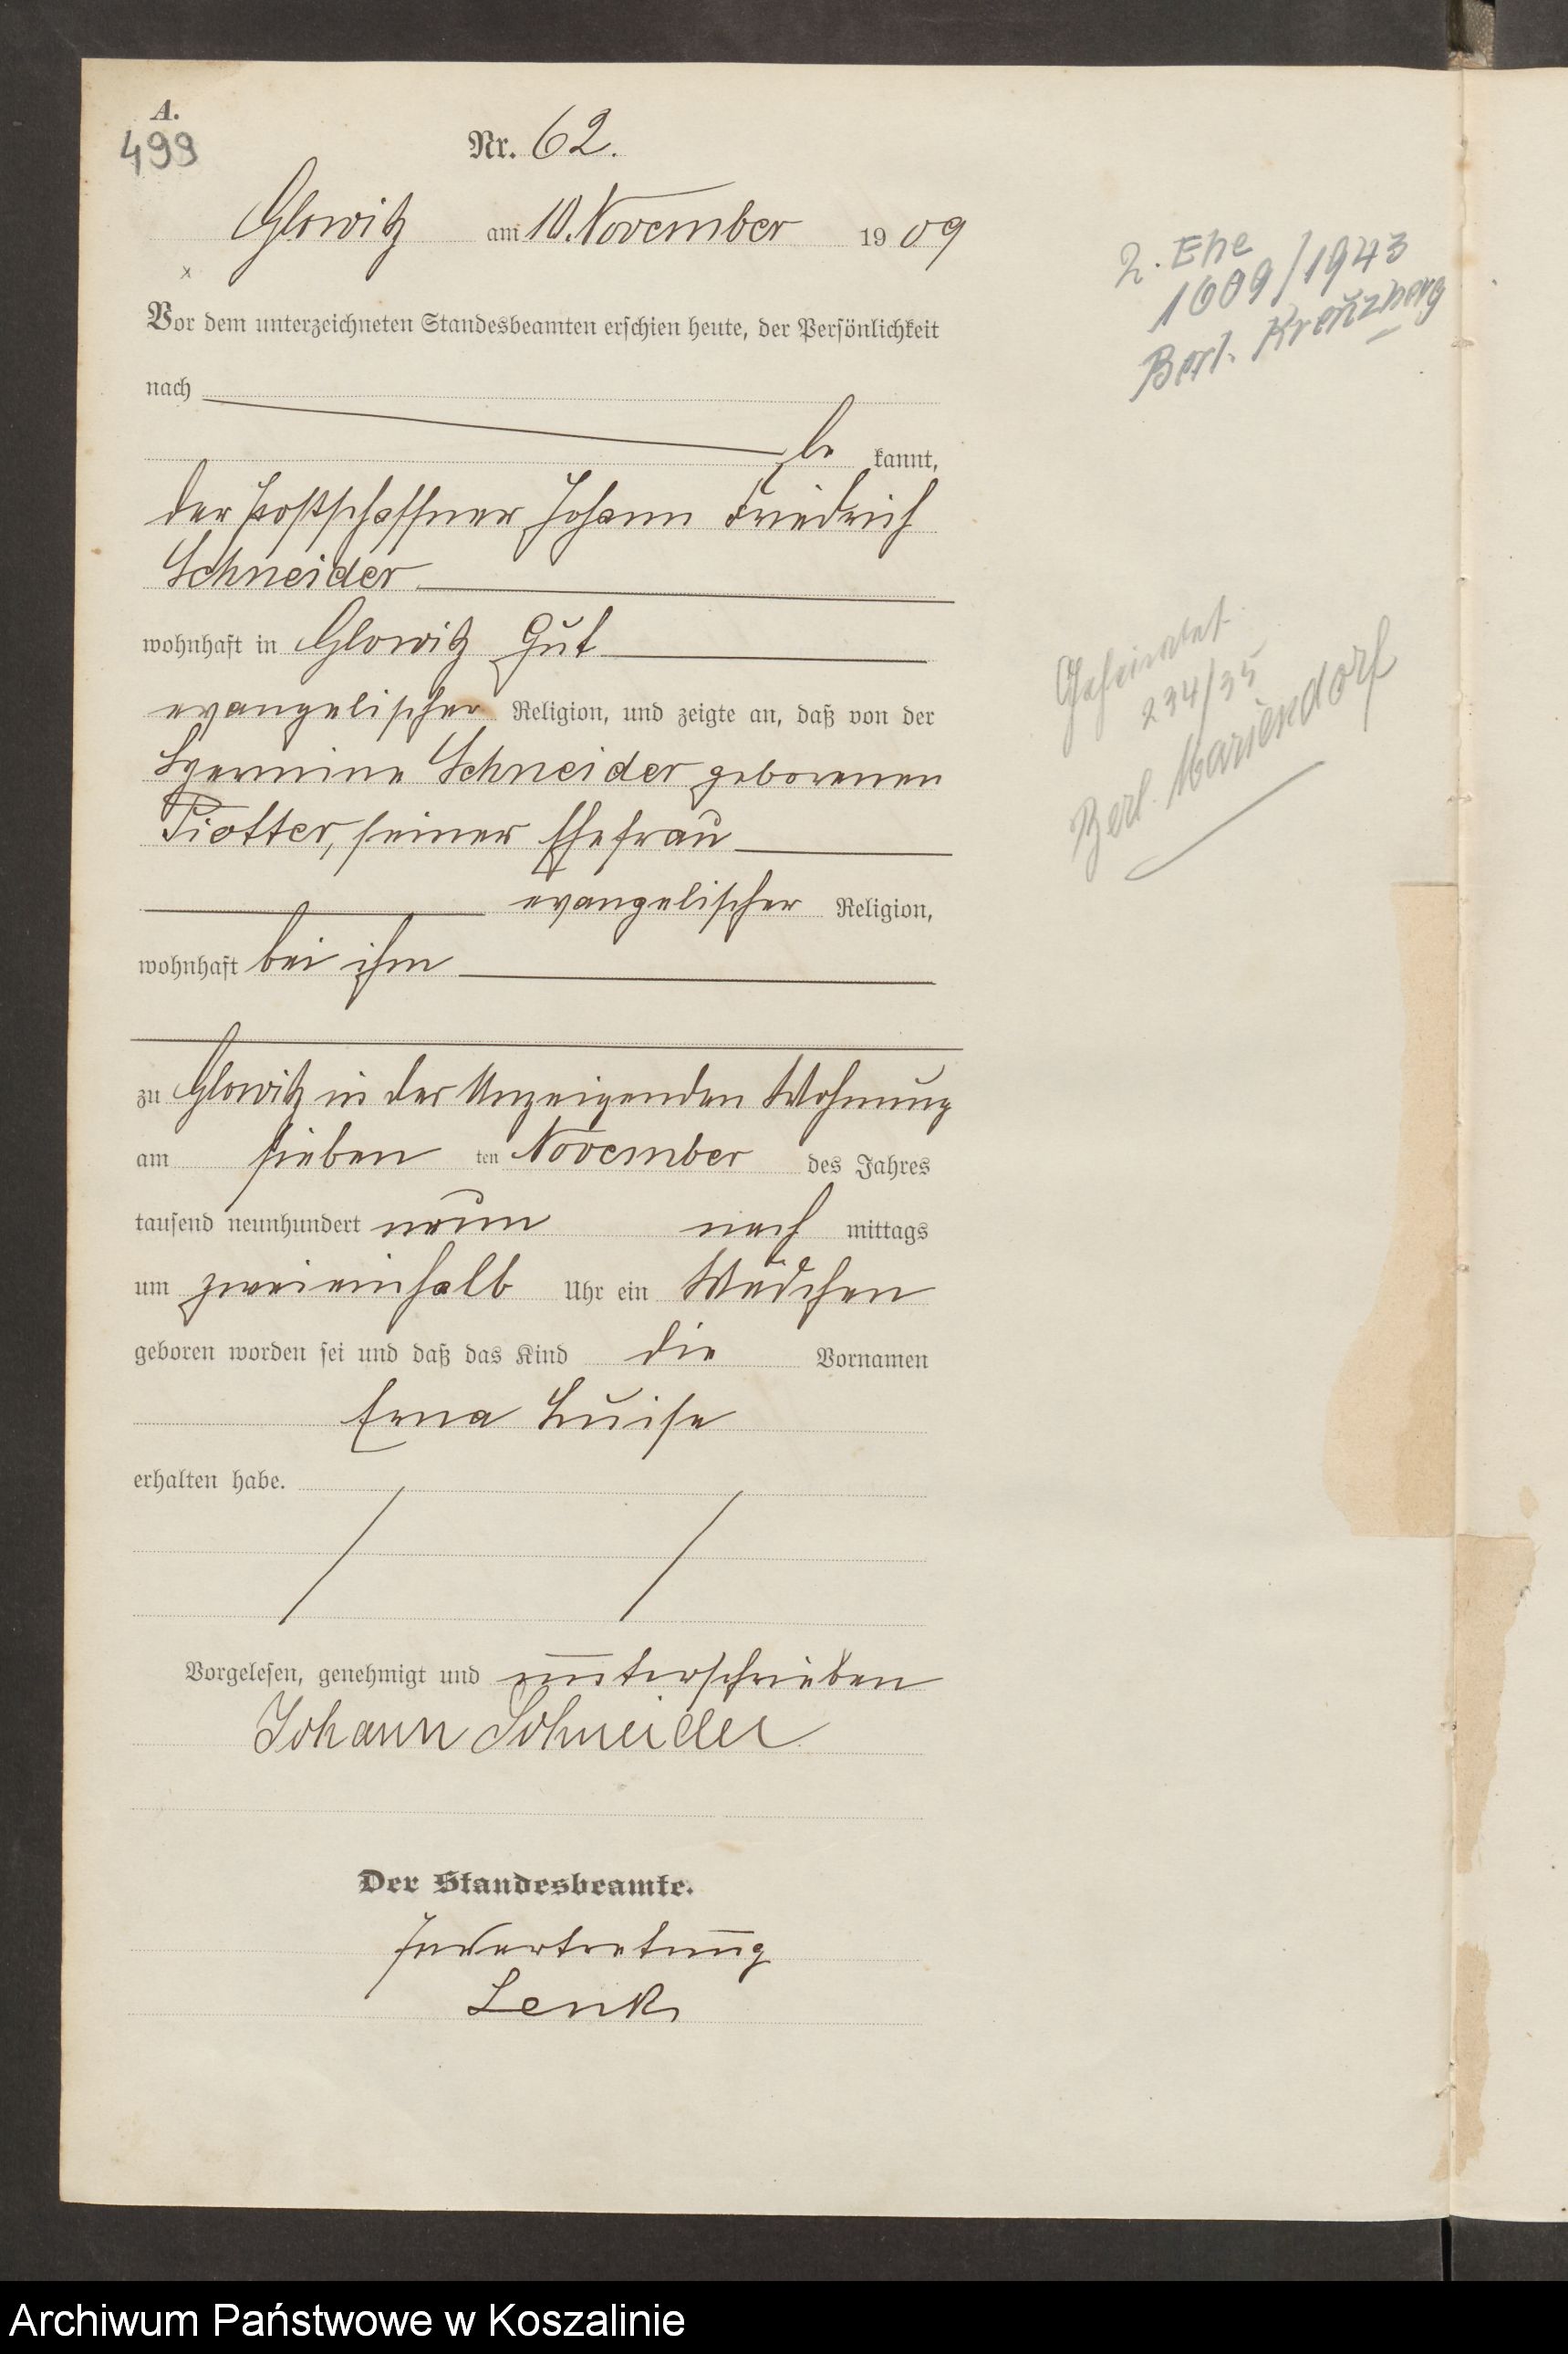 A.
499
Nr. 62.
Glowitz am 10. November 1909
Vor dem unterzeichneten Standesbeamten erschien heute, der Persönlichkeit
nach
be kannt,
der Postschaffner Johann Friedrich
Schneider
wohnhaft in Glowitz Gut
evangelischer Religion, und zeigte an, daß von der
Hermine Schneider geborenen
Piotter, seiner Ehefrau
evangelischer Religion,
wohnhaft bei ihm
zu Glowitz in der Anzeigenden Wohnung
am sieben ten November des Jahres
tausend neunhundert neun nach mittags
um zweieinhalb Uhr ein Mädchen
geboren worden sei und daß das Kind die Vornamen
Erna Luise
erhalten habe.
Vorgelesen, genehmigt und unterschrieben
Johann Schneider
Der Standesbeamte.
In Vertretung
Lenk
2. Ehe
1009/1943
Berl. Kreuzberg
Geheiratet
234/35
Berl. Mariendorf
Archiwum Państwowe w Koszalinie